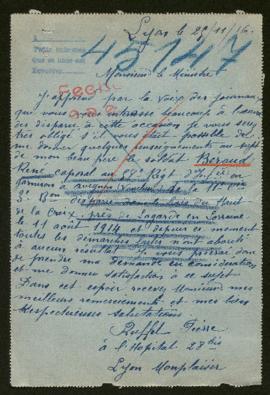 Lyon le 29/11/16.
45147
Monsieur le Ministre
J'apprend par la voix des journaux
que vous vous intéressez beaucoup à cause
des disparus à cette occasion je vous serais
très obligé s'il vous était possible de
me donner quelques renseignements au sujet
de mon beau frère le soldat Beraud
René caporal au 58e Régt d'Inf
garnison à Avignon
3e Bon disparu dans le bois du Haut
de la Croix, près de Lagarde en Lorraine
le 11 août 1914 et depuis ce moment
toutes les démarches faites n'ont abouti
à aucun résultat
je prendre ma demande en considération
et me donner satisfaction à ce sujet
Dans cet espoir recevez Monsieur mes
meilleurs remerciements et mes bien
Respectueuses salutations.
Ruffet Pierre
à l'Hopital 28 bis
Lyon Monplaisir